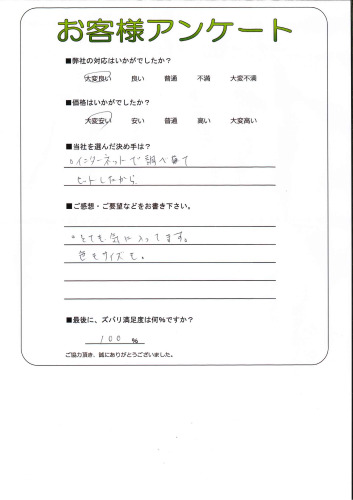 お客様アンケート
■弊社の対応はいかがでしたか?
大変良い 良い 普通 不満 大変不満
■価格はいかがでしたか?
大変安い 安い 普通 高い 大変高い
■当社を選んだ決め手は?
○インターネットで調べ
ヒットしたから
■ご感想・ご要望などをお書き下さい。
○とても気に入ってます。
色もサイズも。
■最後に、ズバリ満足度は何%ですか?
100 %
ご協力頂き、誠にありがとうございました。